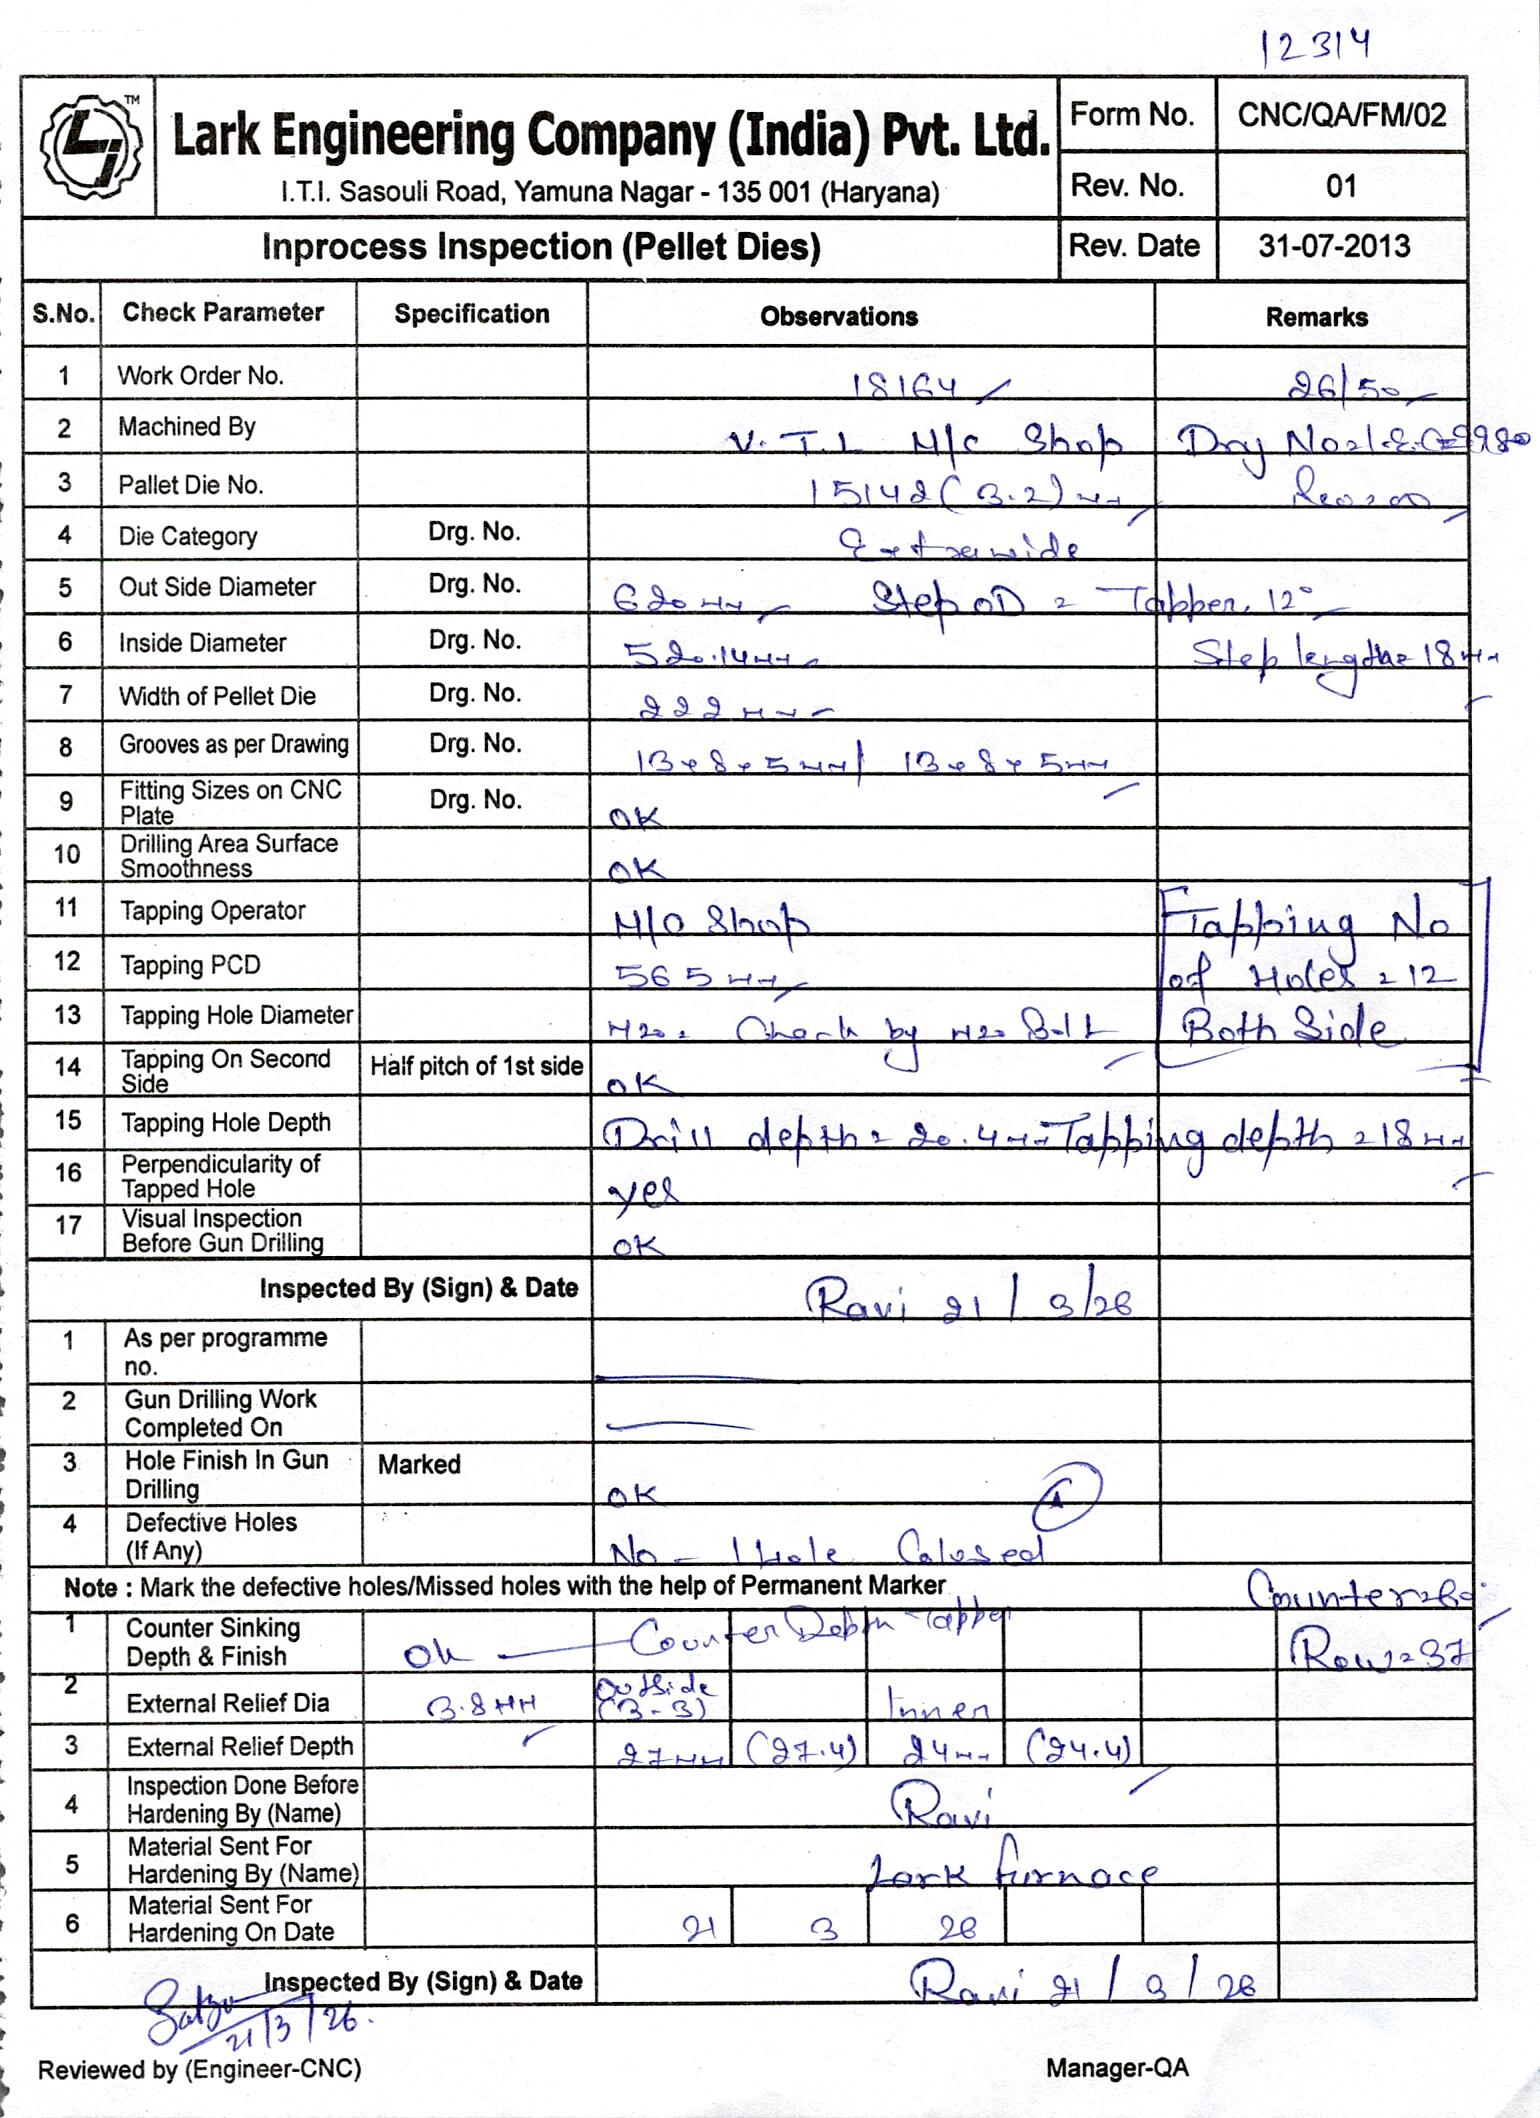 12314
TM
Lark Engineering Company (India) Pvt. Ltd.
I.T.I. Sasouli Road, Yamuna Nagar - 135 001 (Haryana)
Form No. CNC/QA/FM/02
Rev. No. 01
Inprocess Inspection (Pellet Dies) Rev. Date 31-07-2013
S.No. Check Parameter Specification Observations Remarks
1 Work Order No. 18164 26/50
2 Machined By V.T.L M/c Shop Drg No
3 Pallet Die No. 15142 (3.2) mm
4 Die Category Drg. No. Extrawide
5 Out Side Diameter Drg. No. 620 mm Step OD = Tapper. 12°
6 Inside Diameter Drg. No. 520.14 mm Step length = 18 mm
7 Width of Pellet Die Drg. No. 222 mm
8 Grooves as per Drawing Drg. No. 13x8x5mm/ 13x8x5mm
9 Fitting Sizes on CNC Plate Drg. No. OK
10 Drilling Area Surface Smoothness OK
11 Tapping Operator M/C Shop Tapping No
12 Tapping PCD 565 mm of Holes = 12
13 Tapping Hole Diameter M20 = Check by M20 Bolt Both Side
14 Tapping On Second Side Half pitch of 1st side OK
15 Tapping Hole Depth Drill depth = 20.4mm Tapping depth = 18mm
16 Perpendicularity of Tapped Hole yes
17 Visual Inspection Before Gun Drilling OK
Inspected By (Sign) & Date Ravi 21/3/26
1 As per programme no.
2 Gun Drilling Work Completed On
3 Hole Finish In Gun Drilling Marked OK
4 Defective Holes (If Any) No - 1 Hole
Note : Mark the defective holes/Missed holes with the help of Permanent Marker
1 Counter Sinking Depth & Finish Ok Counter Depth Tapper Row = 37
2 External Relief Dia 3.8 MM Outside (3-3) Inner
3 External Relief Depth 27mm (27.4) 24mm (24.4)
4 Inspection Done Before Hardening By (Name) Ravi
5 Material Sent For Hardening By (Name) Lark furnace
6 Material Sent For Hardening On Date 21 3 26
Inspected By (Sign) & Date Ravi 21/3/26
21/3/26.
Reviewed by (Engineer-CNC) Manager-QA